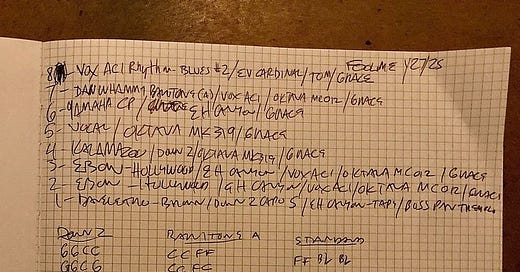 FEEL ME 1/27/25
8 - VOX AC1 Rhythm - BLUES #2 / EV CARDINAL / TOM / GRACE
7 - DAN WHAMMY BARITONE (A) / VOX AC1 / OKTAVA MC012 / GRACE
6 - YAMAHA CP / EH CANYON / GRACE
5 - VOCAL / OKTAVA MK319 / GRACE
4 - KALAMAZOO / DOWN 2 / OKTAVA MK319 / GRACE
3 - EBOW - HOLLYWOOD / EH CANYON / VOX AC1 / OKTAVA MC012 / GRACE
2 - EBOW - HOLLYWOOD / EH CANYON / VOX AC1 / OKTAVA MC012 / GRACE
1 - DANELECTRO - BROWN / DOWN 2 CAPO 5 / EH CANYON - TAPE / BOSS PAN
DOWN 2 BARITONE A STANDARD
GGCC CCFF FF BL BL
GGCG CCFC